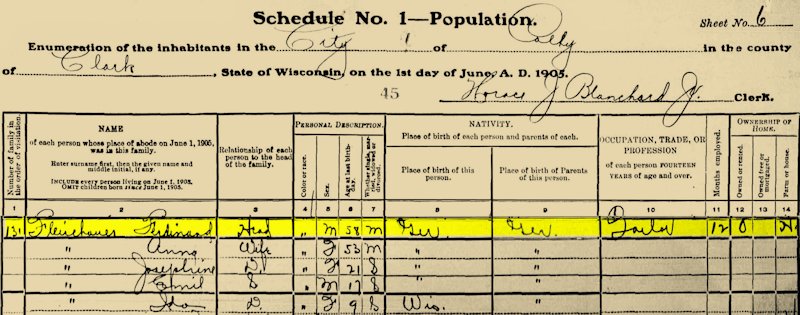 Schedule No. 1—Population.
Sheet No. 6
Enumeration of the inhabitants in the City of Colby in the county
of Clark, State of Wisconsin, on the 1st day of June, A. D. 1905.
45
Horace J Blanchard Jr. Clerk.
Number of family in the order of visitation.
NAME
of each person whose place of abode on June 1, 1905, was in this family.
Enter surname first, then the given name and middle initial, if any.
INCLUDE every person living on June 1, 1905.
OMIT children born since June 1, 1905.
Relationship of each person to the head of the family.
PERSONAL DESCRIPTION.
Color or race.
Sex.
Age at last birthday.
Whether single, married, widowed or divorced.
NATIVITY.
Place of birth of each person and parents of each.
Place of birth of this person.
Place of birth of Parents of this person.
OCCUPATION, TRADE, OR PROFESSION
of each person FOURTEEN YEARS of age and over.
Months employed.
OWNERSHIP OF HOME.
Owned or rented.
Owned free or mortgaged.
Farm or house.
1 2 3 4 5 6 7 8 9 10 11 12 13 14
131 Fleischauer Ferdinand Head " M 58 M Ger. Ger. Tailor 12 O H
" Anna Wife " F 53 M " "
" Josephine D. " F 21 S " "
" Emil S " M 17 S " "
" Ida D. " F 9 S Wis. "